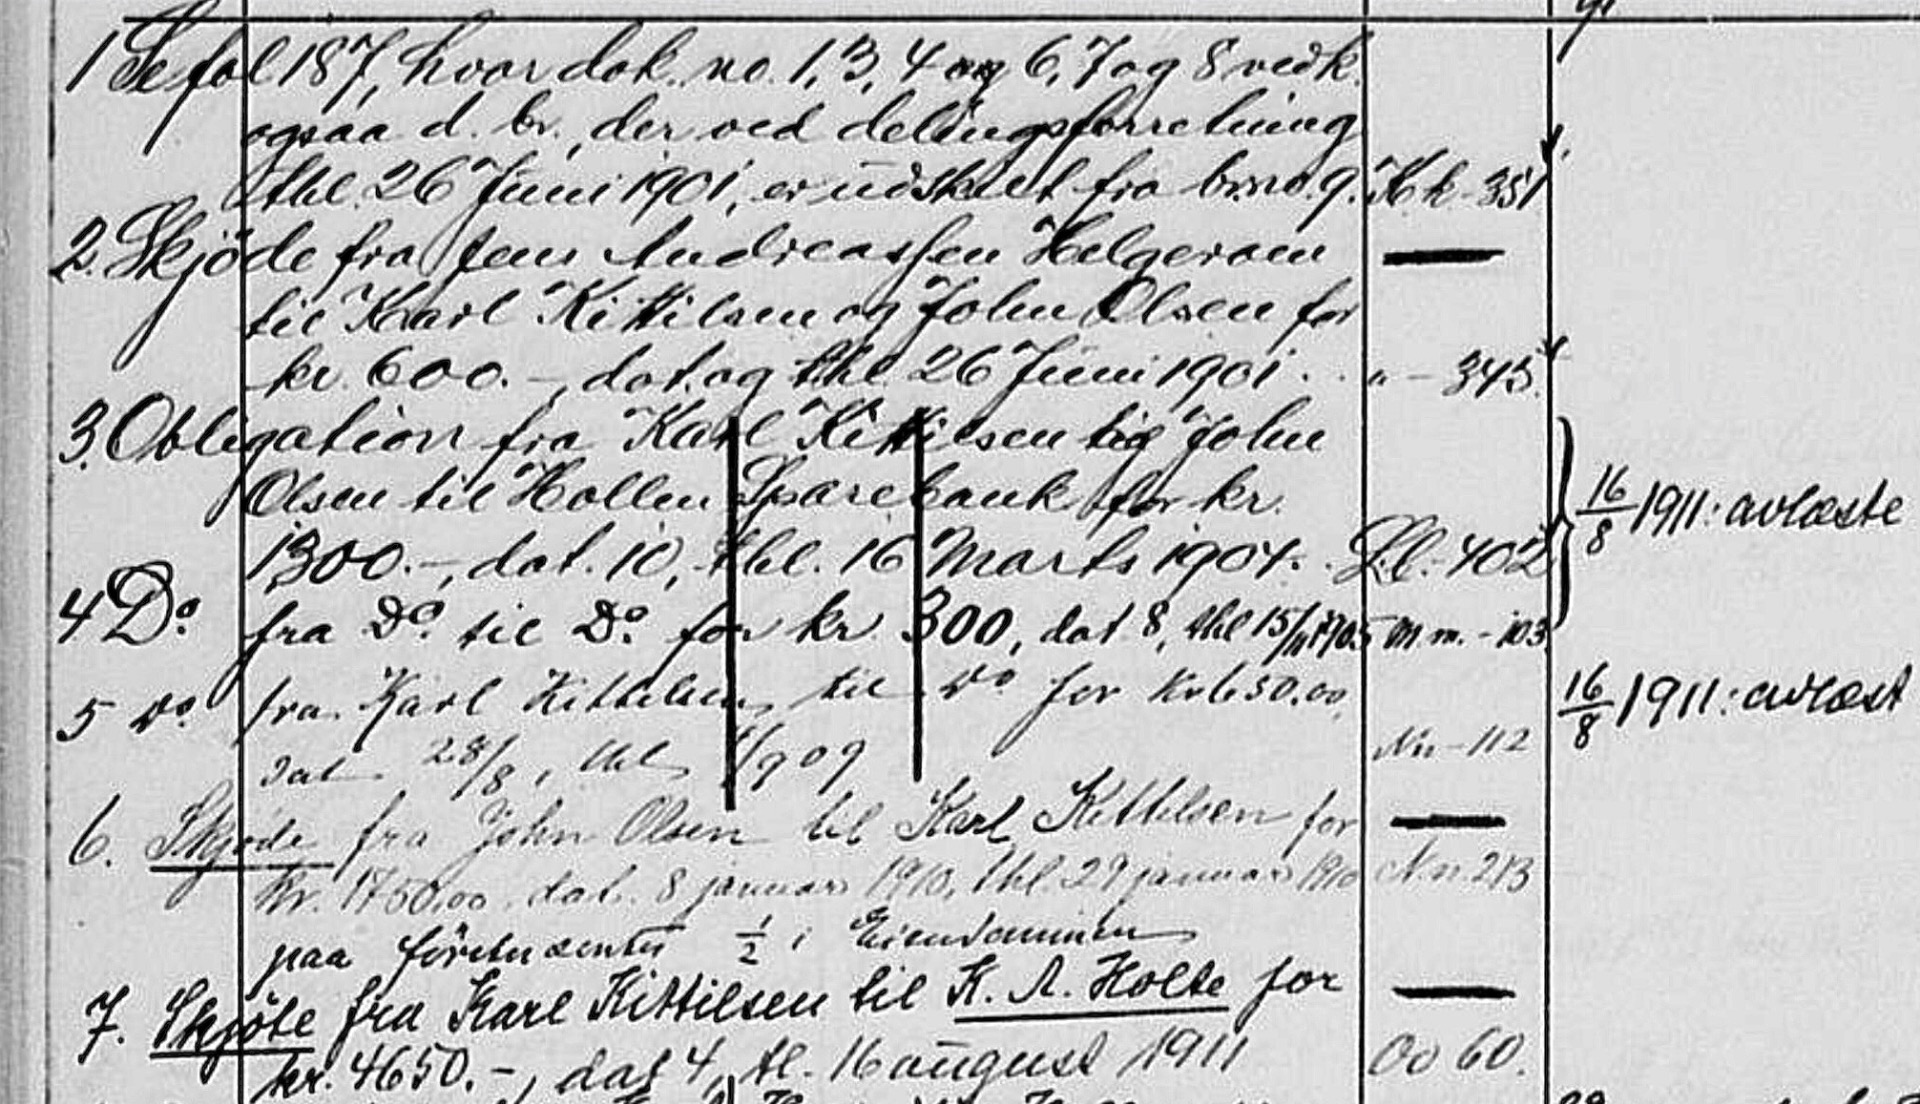 1 Se fol 187, hvor dok. no. 1, 3, 4 og 6, 7 og 8 vedk.
ogsaa d. br., der ved delingsforretning
thl. 26 Juni 1901, er udskilt fra br.no. 9. Kk - 351
2. Skjöde fra Jens Andreassen Helgeroen
til Karl Kittilsen og John Olsen for
kr. 600.-, dat. og thl. 26 Juni 1901. . " - 345.
3. Obligation fra Karl Kittilsen og John
Olsen til Hollen Sparebank for kr.
1300.-, dat. 10, thl. 16 Marts 1904. . Ll. - 402 16/8 1911: avlæste
4 Do. fra Do. til Do. for kr. 300, dat 8, thl 15/11 1905 M.m. - 103
5 do. fra Karl Kittilsen til do for Kr 650.00, 16/8 1911: avlæst
dat. 28/8, thl 1/9 09 Nn - 112
6. Skjøde fra John Olsen til Karl Kittilsen for
Kr. 1750,00, dat. 8 januar 1910, thl. 29 januar 1910 Nn 213
paa førstnævntes 1/2 i Eiendommen
7. Skjöte fra Karl Kittilsen til K. A. Holte for
kr. 4650.-, dat 4, tl. 16 august 1911 Oo 60.